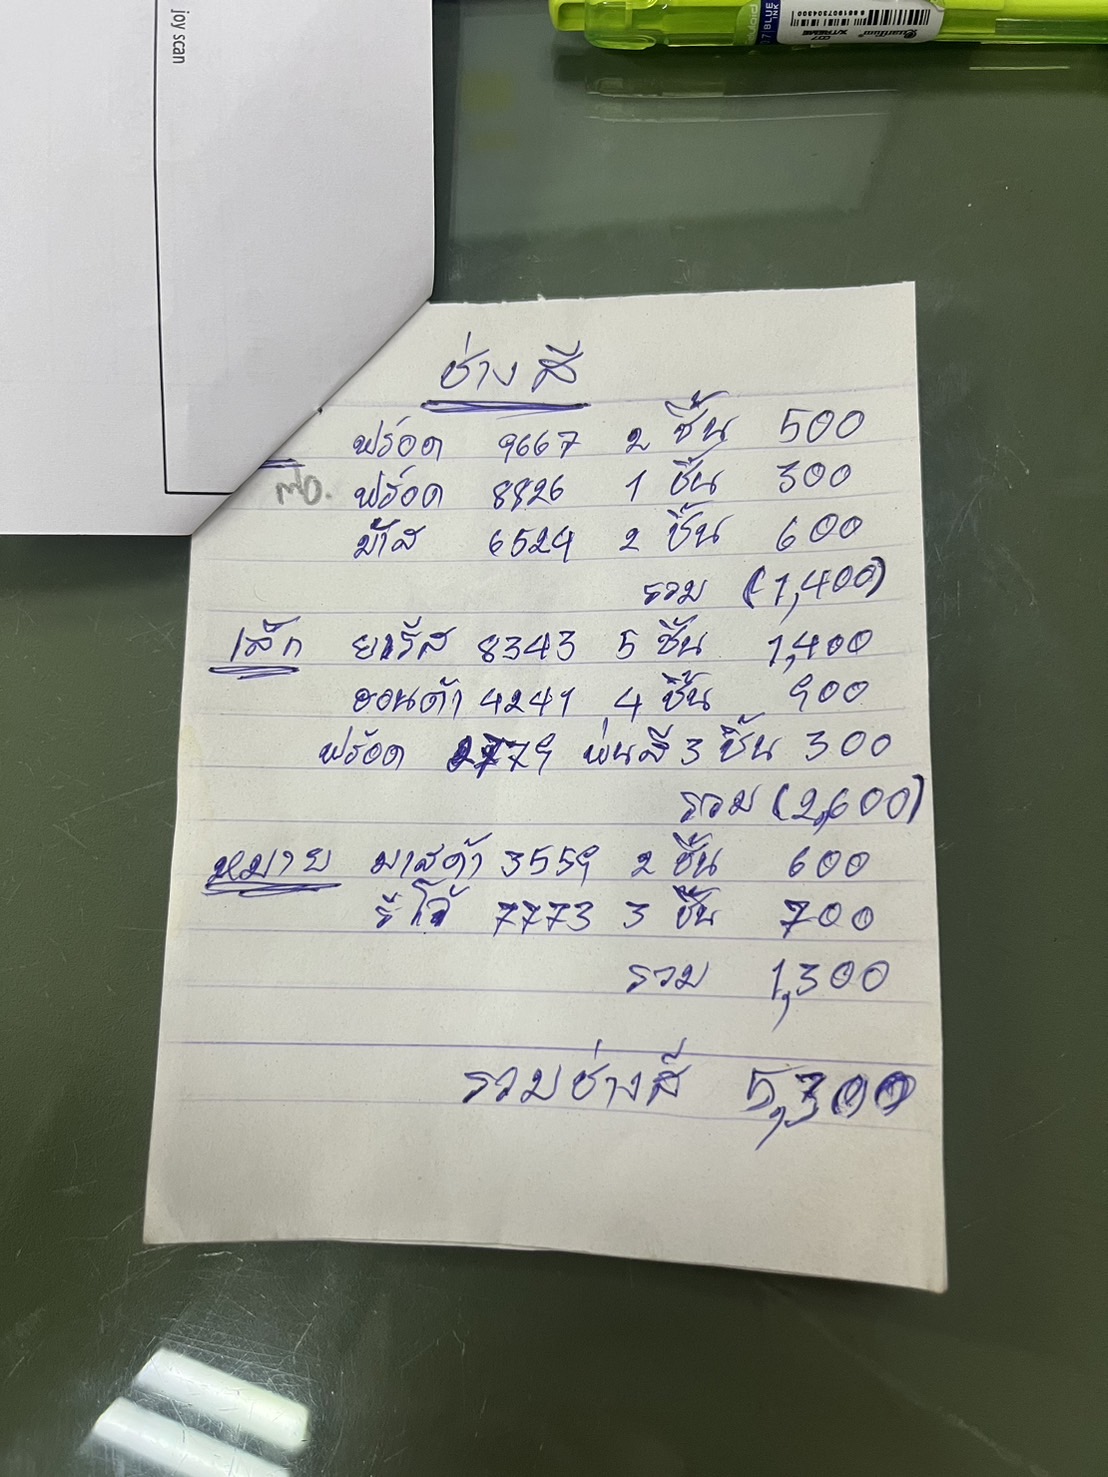 joy scan
Quantum
XTREME
0.7 BLUE INK
ช่าง สี
ฟร์อด 9667 2 ชิ้น 500
ฟร์อด 8826 1 ชิ้น 300
6524 2 ชิ้น 600
รวม (1,400)
เล็ก ยาริส 8343 5 ชิ้น 1,400
ฮอนด้า 4241 4 ชิ้น 900
ฟร้อด 2779 พ่นสี 3 ชิ้น 300
รวม (2,600)
หมาย มาสด้า 3559 2 ชิ้น 600
รีโว้ 7773 3 ชิ้น 700
รวม 1,300
รวมช่างสี 5,300